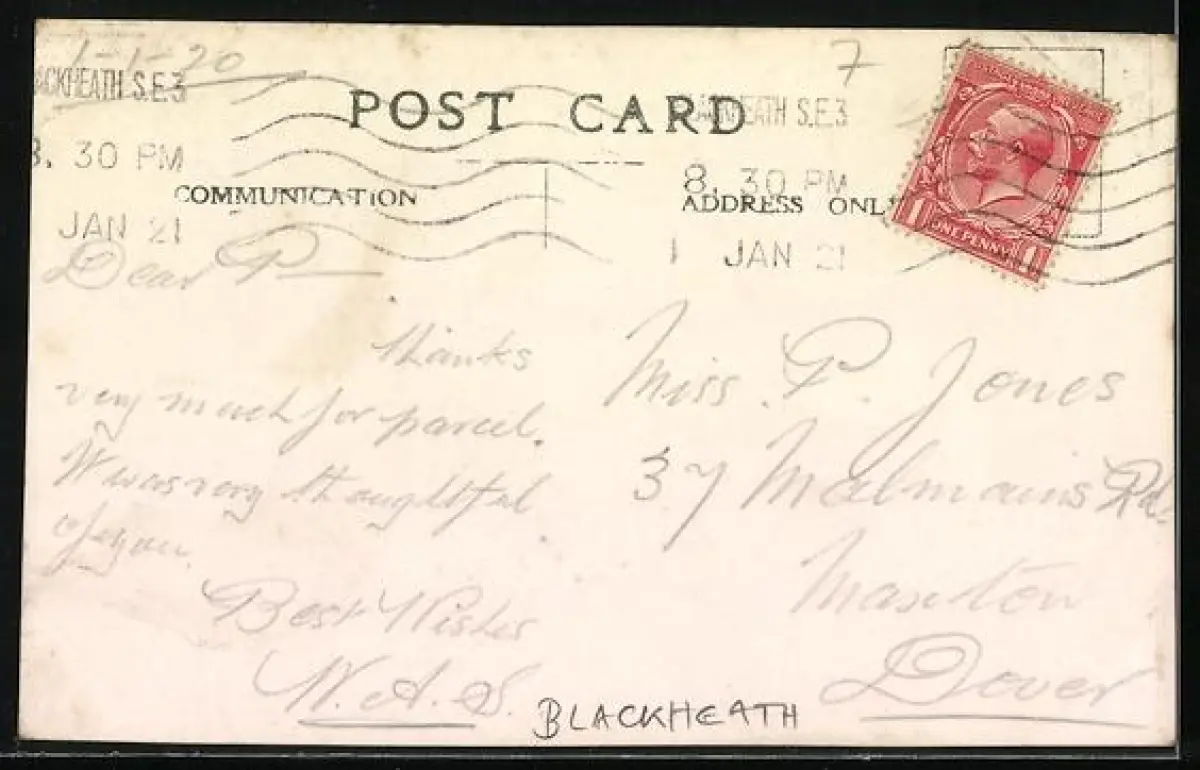 1-1-20
7
BLACKHEATH S.E.3
8. 30 PM
JAN 21
BLACKHEATH S.E.3
8. 30 PM
1 JAN 21
POST CARD
COMMUNICATION
ADDRESS ONLY
ONE PENNY
1 1
Dear P—
thanks
very much for parcel.
It was very thoughtful
of you.
Best Wishes
W. A. S.
Miss. P. Jones
37 Malmains Rd.
Maxton
Dover
BLACKHEATH